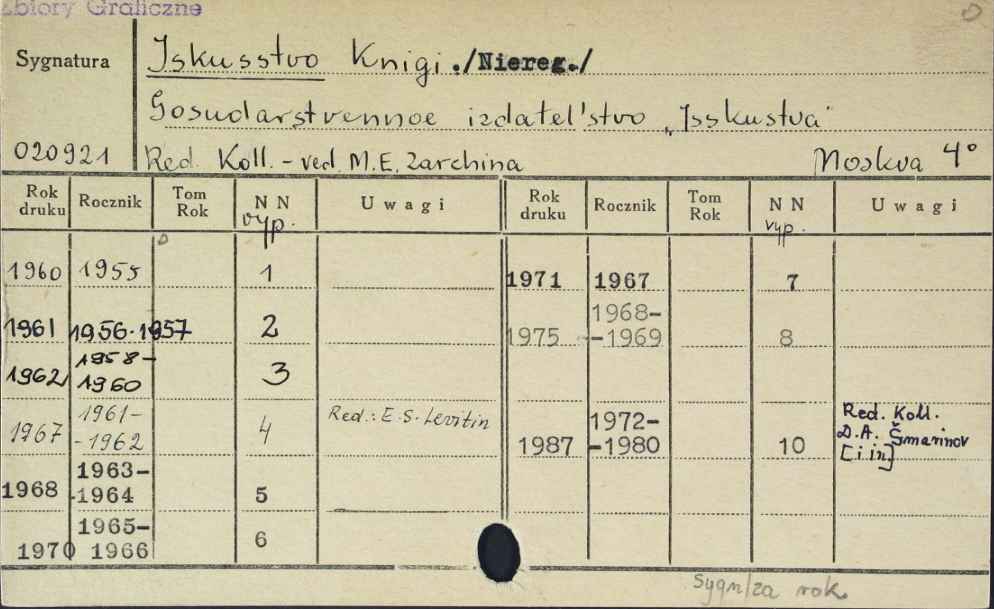 Zbiory Graficzne
Sygnatura
Iskusstvo Knigi ./Niereg./
Gosudarstvennoe izdatel'stvo „Isskustva"
020921 Red. Koll. - ved. M.E. Zarchina Moskva 4°
Rok druku Rocznik Tom Rok N N vyp. U w a g i Rok druku Rocznik Tom Rok N N vyp. U w a g i
1960 1955 1
1971 1967 7
1961 1956-1957 2
1975 1968-1969 8
1962 1958-1960 3
1967 1961-1962 4 Red.: E.S. Levitin
1987 1972-1980 10 Red. Koll. D.A. Šmarinov [i in]
1968 1963-1964 5
1970 1965-1966 6
Sygn/za rok.